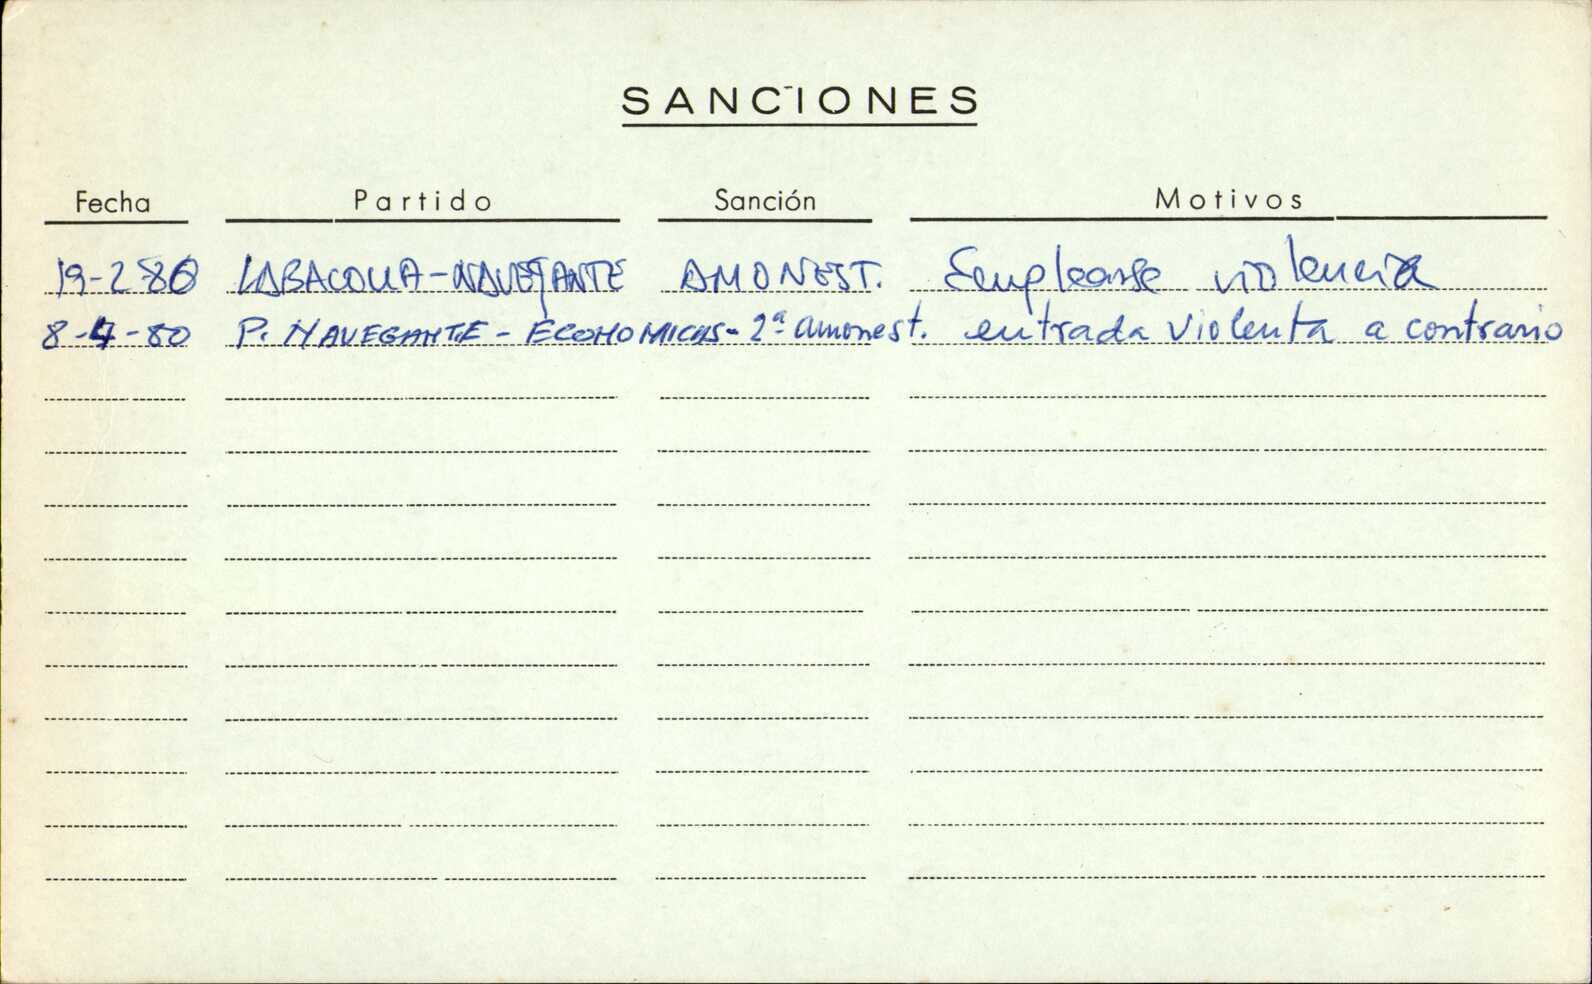 SANCIONES
Fecha Partido Sanción Motivos
19-2-80 LABACOLLA-NAVEGANTE AMONEST. Emplearse violencia
8-4-80 P. NAVEGANTE - ECONOMICAS - 2ª amonest. entrada violenta a contrario